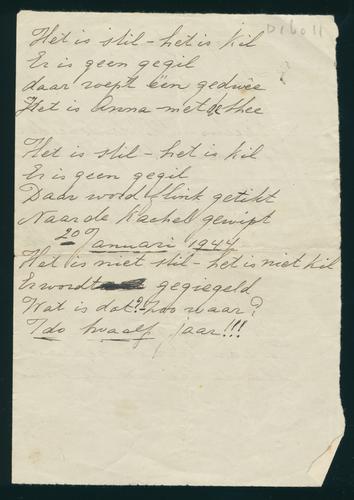 D16011
Het is stil - het is kil
Er is geen gegil
daar roept één gedwee
Het is Anna met de thee
Het is stil - het is kil
Er is geen gegil
Daar word flink getikt
Naar de kachel gewipt
20 Januari 1944
Het is niet stil - het is niet kil
Er wordt gegiegeld
Wat is dat? - hoo waar?
Ido twaalf jaar!!!